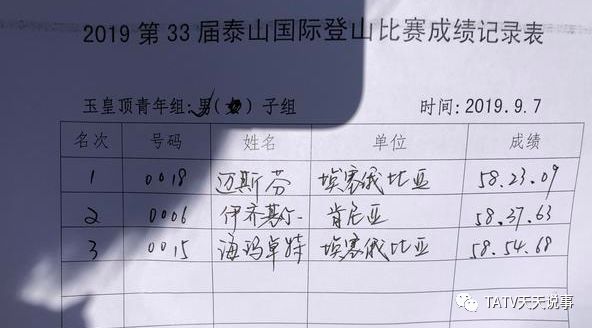 2019 第 33 届泰山国际登山比赛成绩记录表
玉皇顶青年组:男(女)子组 时间:2019.9.7
名次 号码 姓名 单位 成绩
1 0018 迈斯芬 埃塞俄比亚 58.23.09
2 0006 伊齐基尔 肯尼亚 58.37.63
3 0015 海玛卓特 埃塞俄比亚 58.54.68
TATV天天说事